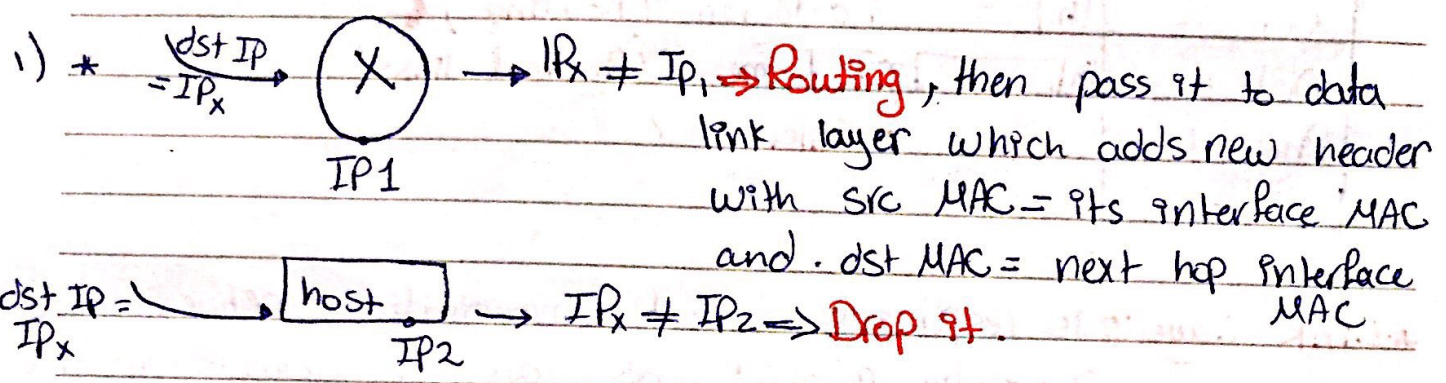 1) * dst IP = IPx X → IPx ≠ IP1 ⇒ Routing, then pass it to data
IP1 link layer which adds new header
with src MAC = its interface MAC
and . dst MAC = next hop interface MAC
dst IP = IPx host → IPx ≠ IP2 => Drop it.
IP2